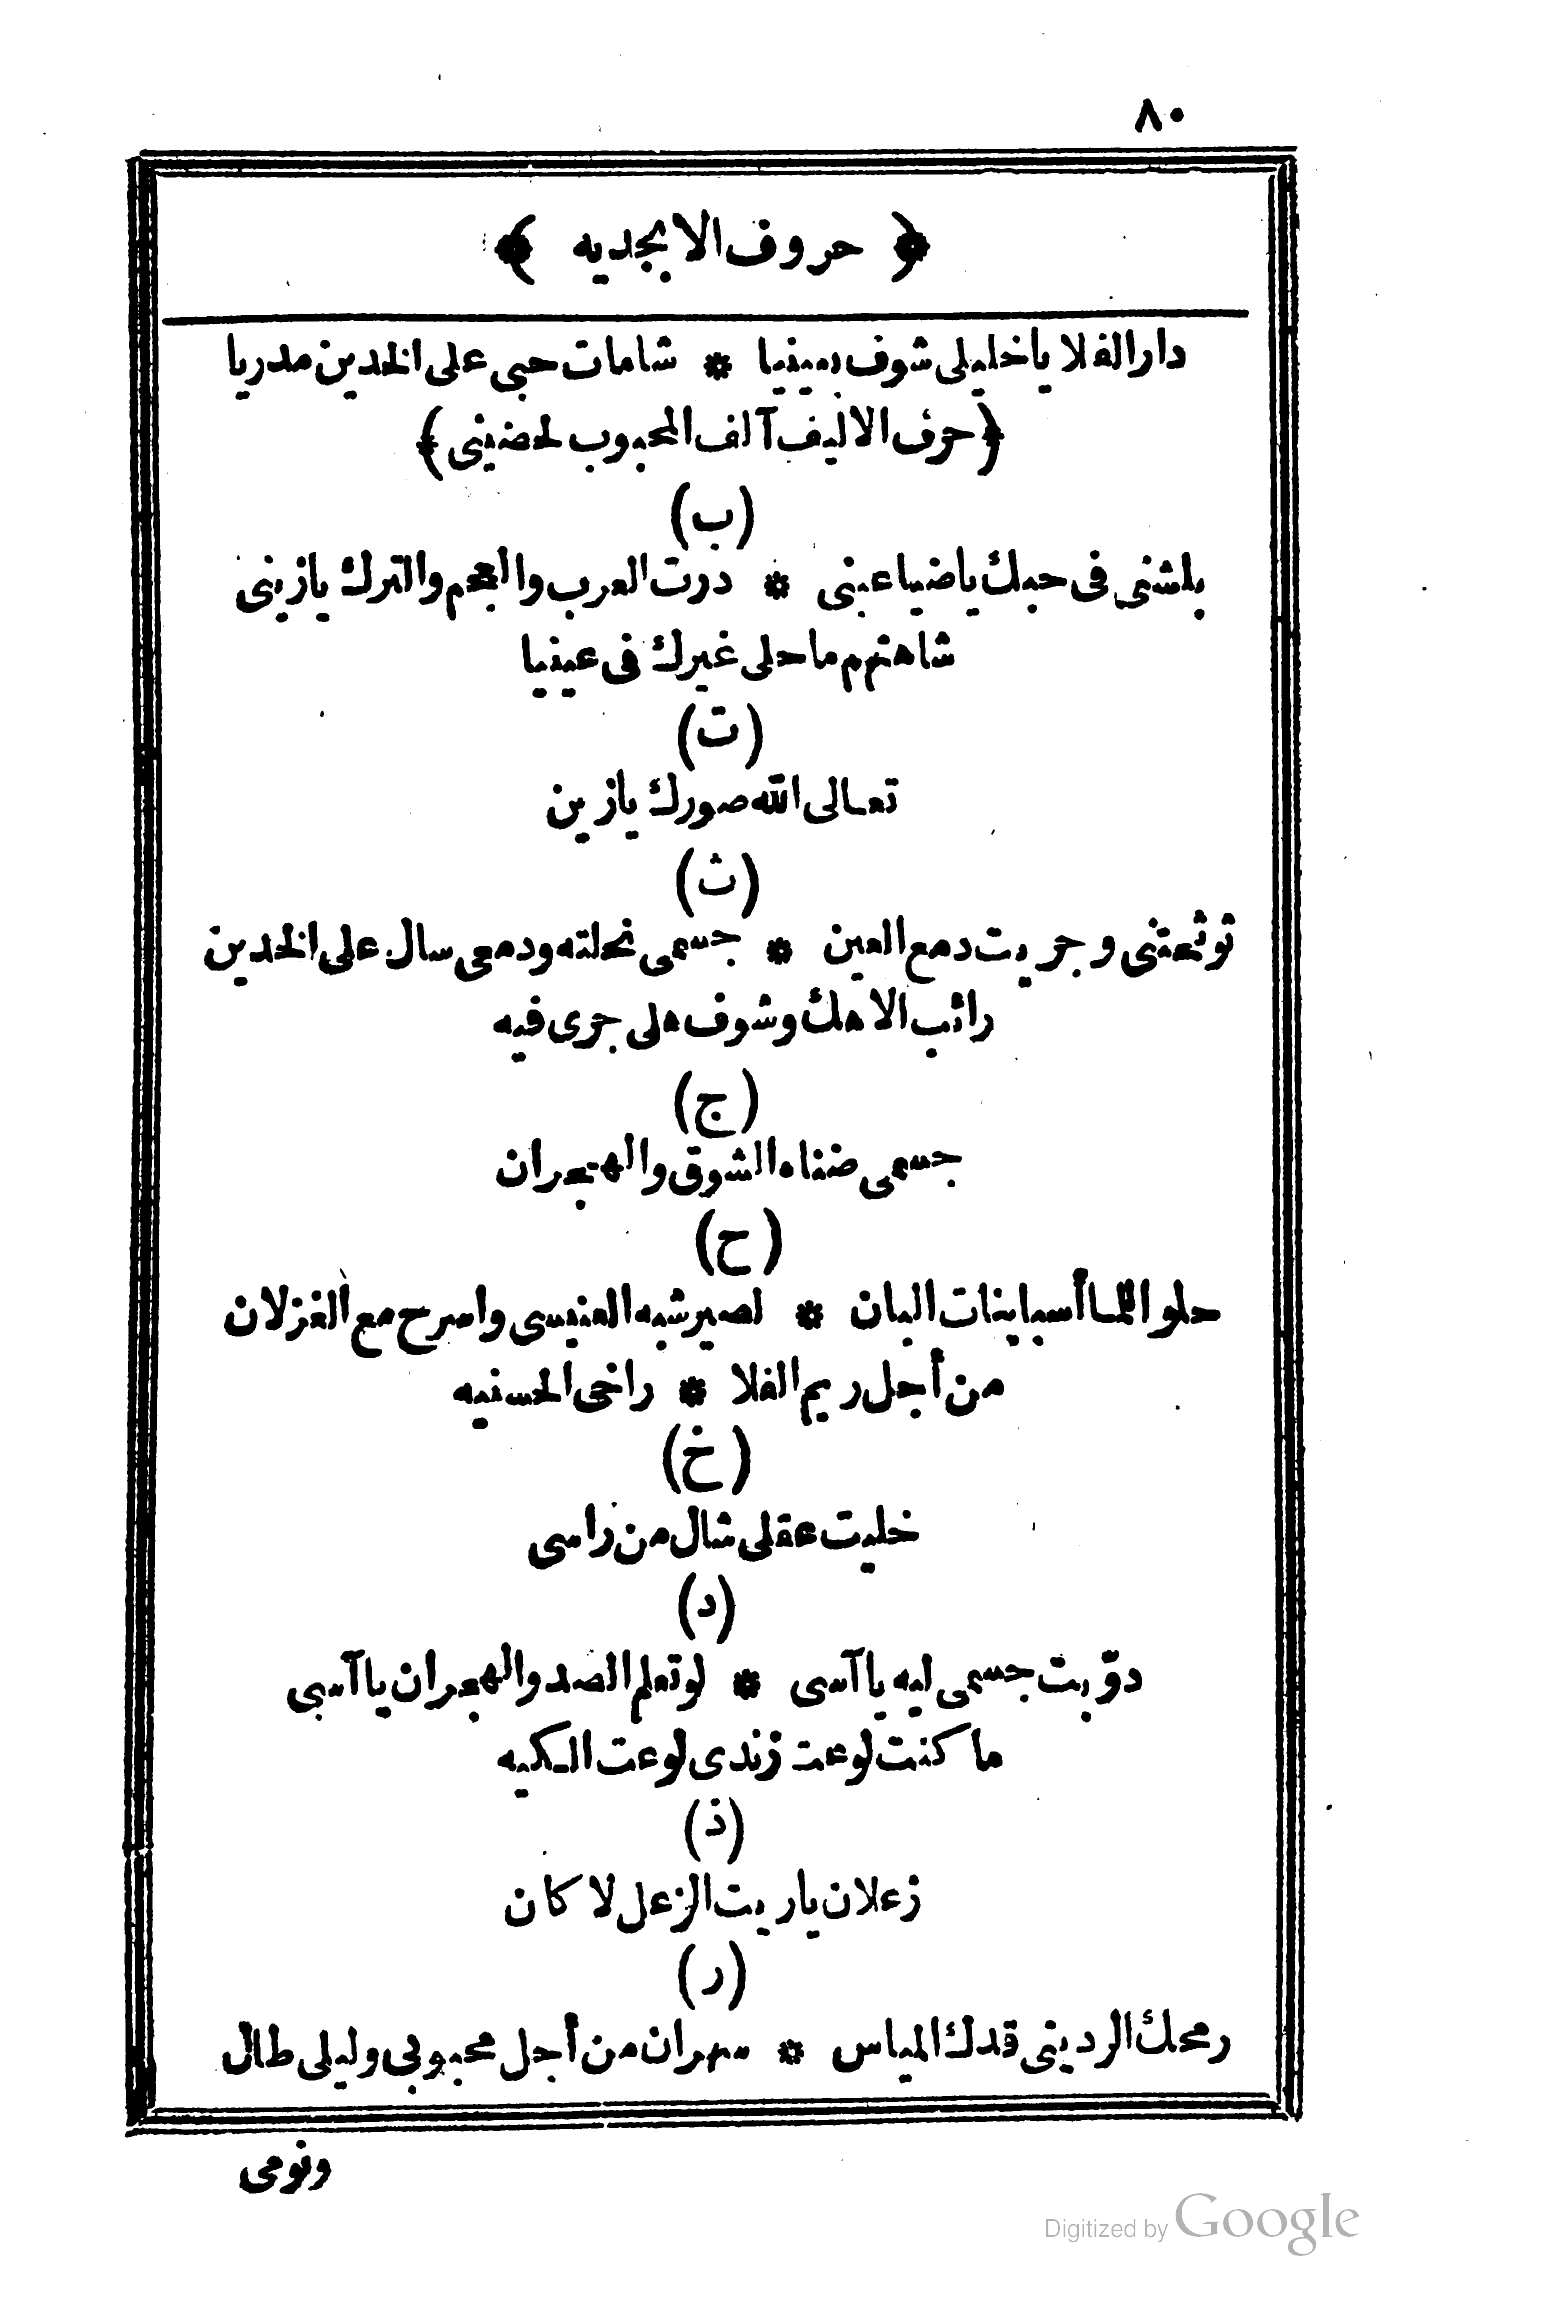 ٨٠
﴿ حروف الابجديه ﴾
دار الفلا يا خليلى شوف بعينيا * شامات حبى على الخدين مدريا
﴿حرف الاليف آلف المحبوب لحضينى﴾
(ب)
بلشنى فى حبك يا ضيا عينى * درت العرب والعجم والترك يا زينى
شاهتهم ما حلى غيرك فى عينيا
(ت)
تعالى الله صورك يا زين
(ث)
ثوثعتنى وجريت دمع العين * جسمى نحلته ودمعى سال على الخدين
راثب الاهك وشوف هلى جرى فيه
(ج)
جسمى ضناه الشوق والهجران
(ح)
حلو اللما أسباينات البان * لصير شبه العنيسى واسرح مع الغزلان
من أجل ريم الفلا * راخى الحسنيه
(خ)
خليت عقلى شال من راسى
(د)
دوّبت جسمى ليه يا آسى * لو تعلم الصد والهجران يا آسى
ما كنت لوعت زندى لوعت الكيه
(ذ)
زعلان ياريت الزعل لا كان
(ر)
رمحك الردينى قدك المياس * سهران من أجل محبوبى وليلى طال
ونومى
Digitized by Google